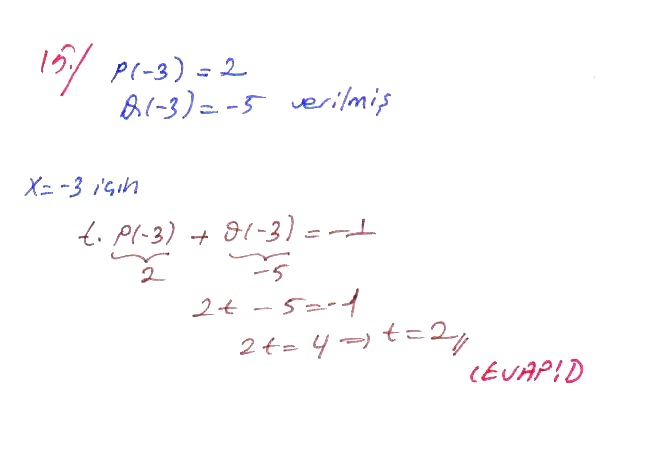 15-/ P(-3) = 2
Q(-3) = -5 verilmiş
x = -3 için
t. P(-3) + Q(-3) = -1
2 -5
2t - 5 = -1
2t = 4 => t = 2//
CEVAP: D